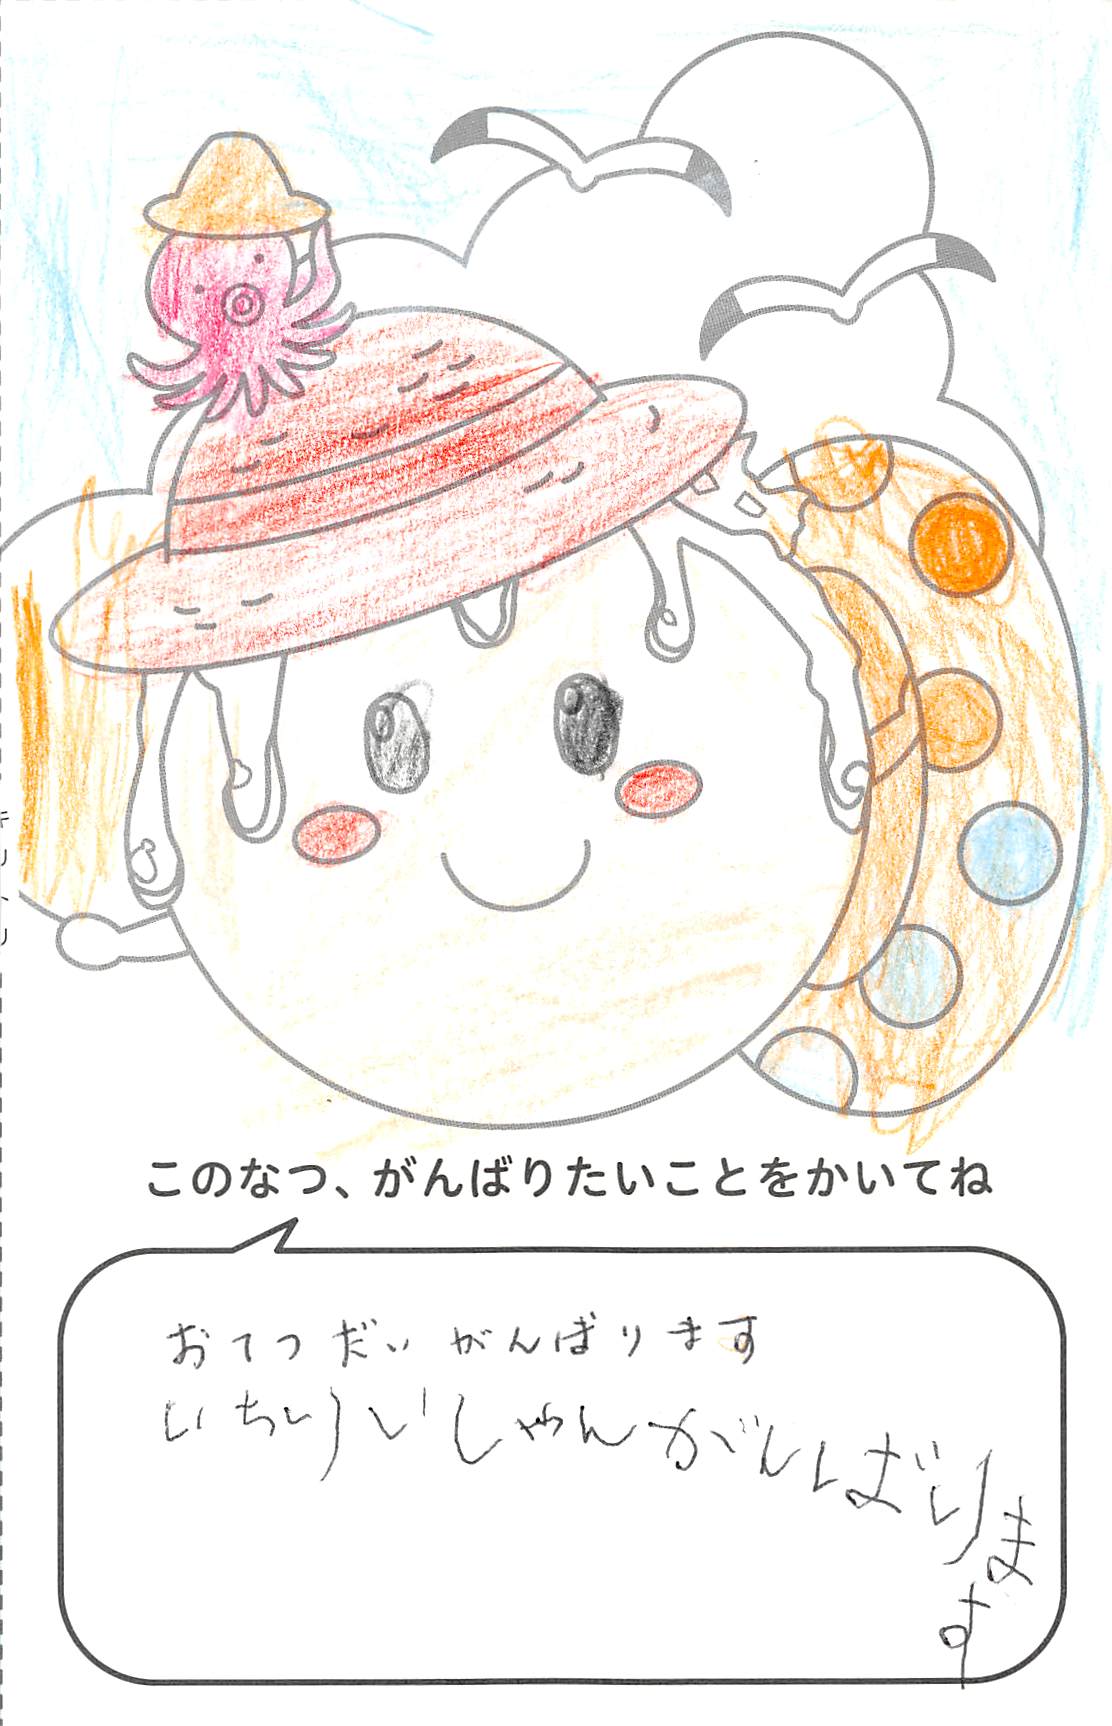 このなつ、がんばりたいことをかいてね
おてつだいがんばります
いちりいしゃんがんばります
キリトリ